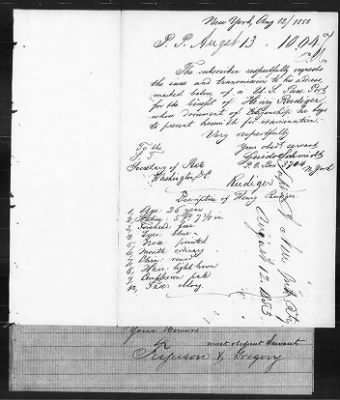 New York, Aug 12/1853
P. P. Augst 13. 1004
The subscriber respectfully requests
the issue and transmission to his address
marked below of a U. S. Pass Port
for the benefit of Henry Ruediger
whose document of Citizenship he begs
to present herewith for examination.
Very respectfully
To the
Your obedt servant
Secretary of State
P. O. Box 3744 N. York
Washington, D.C.
Rudiger
Description of Henry Ruediger
1, Age: 26 year
2, Stature: 5 ft 7 1/2 in
3, Forehead: free
4, Eyes: blue
5, Nose: pointed
6, Mouth: ordinary
7, Chin: round
8, Hair: light brown
9, Complexion: pale
10, Face: oblong
New York City
August 12. 1853
Your Honors
most obdient Servants
& Gregory